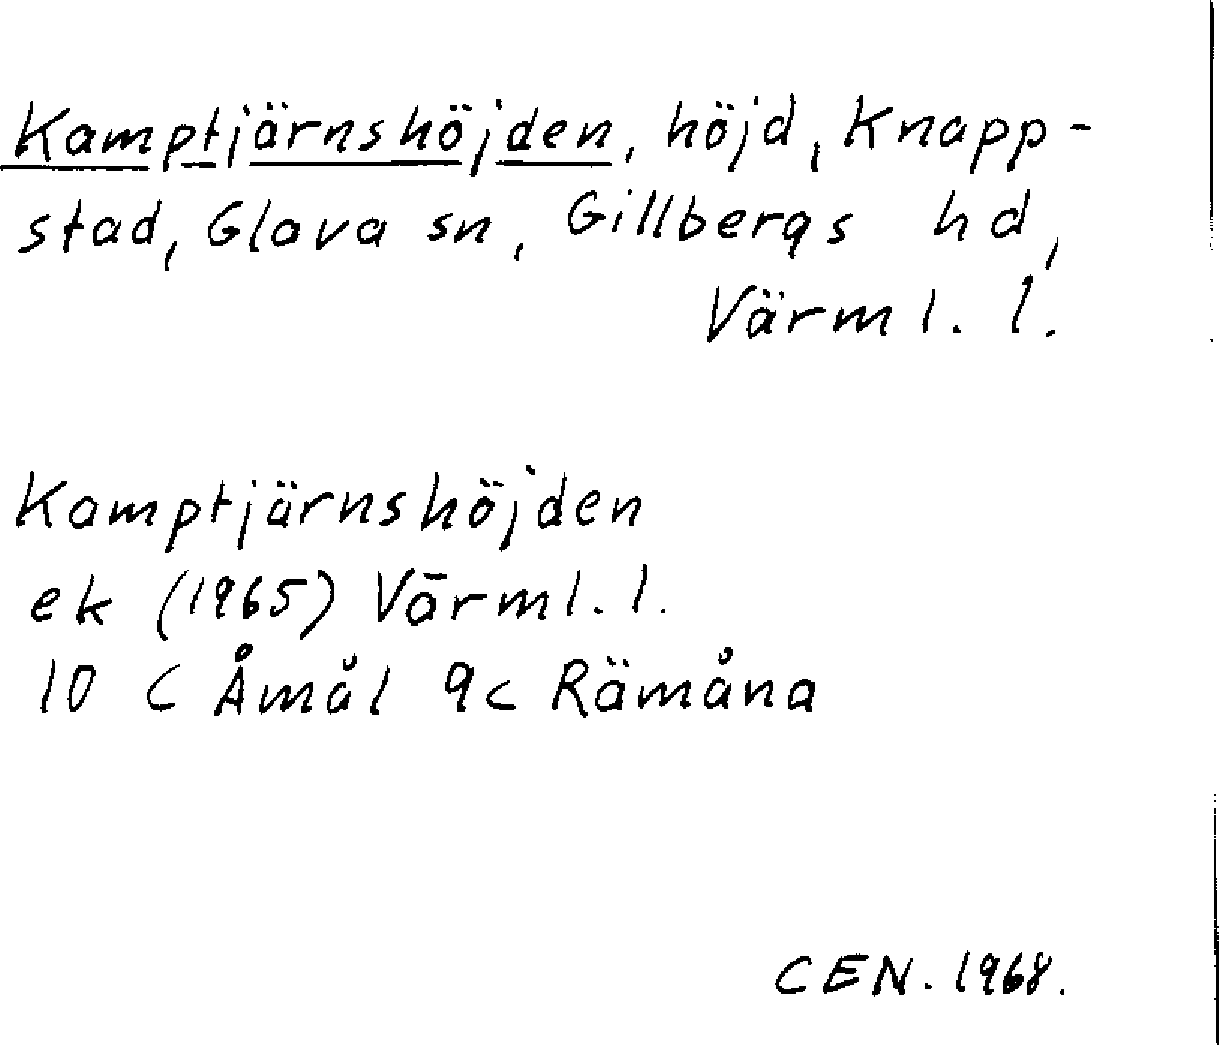 Kamptjärnshöjden, höjd, Knapp-
stad, Glava sn, Gillbergs hd,
Värml. l.
Kamptjärnshöjden
ek (1965) Värml. l.
10 C Åmål 9c Rämåna
CEN. 1968.